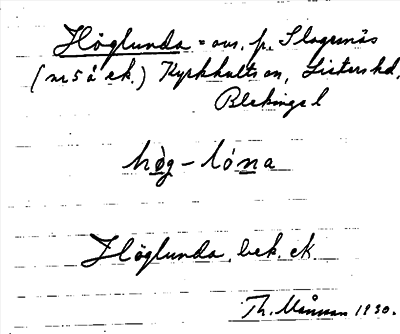 Höglunda = avs. p. Slagesnäs
(nr 5 å ek.) Kyrkhults sn, Listers hd,
Blekinge l
hög - lóna
Höglunda, bek. ek.
Th. Månsson 1930.